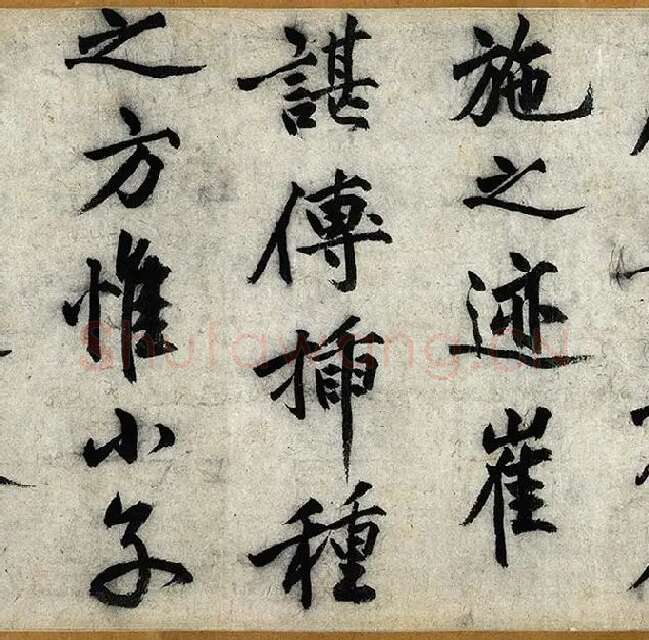 施之迹崔
諶傳插種
之方惟小子
shufawang.cn